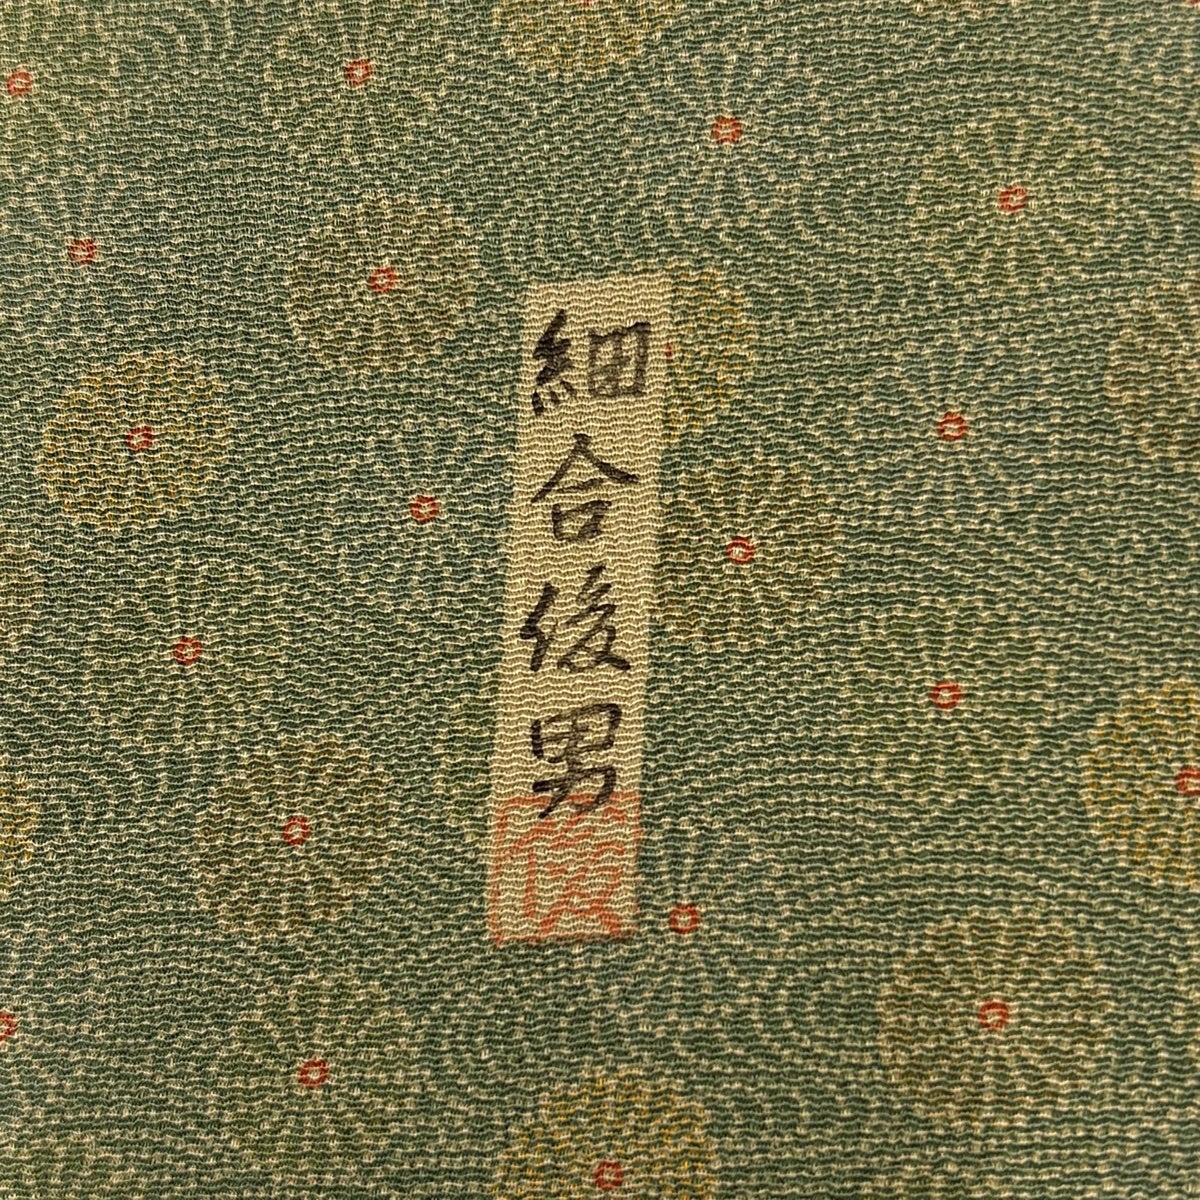 細合俊男
俊